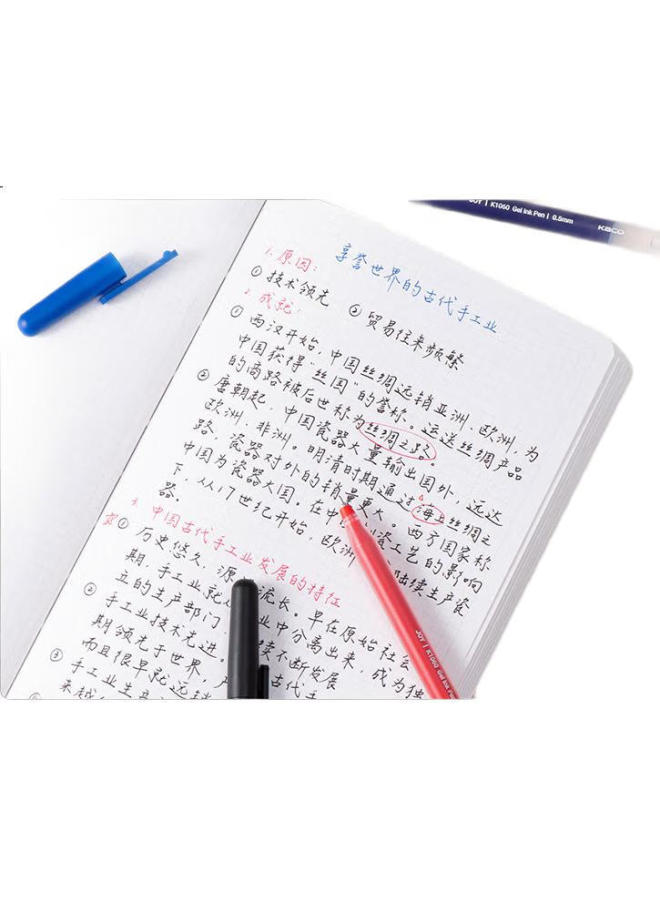 JOY | K1060 Gel Ink Pen | 0.5mm
KACO
享誉世界的古代手工业
1. 原因:
① 技术领先 ② 贸易往来频繁
2. 成就:
① 西汉开始,中国丝绸远销亚洲、欧洲,为
中国获得“丝国”的誉称。运送丝绸产品
的商路被后世称为丝绸之路。
② 唐朝起,中国瓷器大量输出国外,远达
欧洲、非洲。明清时期通过海上丝绸之
路,瓷器对外的销量更大。西方国家称
中国为瓷器大国,在中 瓷工艺的影响
下,从17世纪开始,欧洲 陆续生产瓷
器。
3. 中国古代手工业发展的特征
① 历史悠久、源 流长。早在原始社会
期,手工业就 业中分离出来,成为独
立的生产部门
② 手工业技术先进。 续不断发展
期领先于世界,产 古代手
而且很早就远销
③ 手工业生产
来越
JOY | K1060 Gel Ink Pen